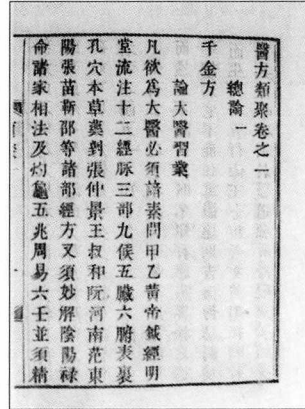 醫方類聚卷之一
總論一
千金方
論大醫習業
凡欲爲大醫必須諳素問甲乙黃帝鍼經明
堂流注十二經脈三部九候五臟六腑表裏
孔穴本草藥對張仲景王叔和阮河南范東
陽張苗靳邵等諸部經方又須妙解陰陽祿
命諸家相法及灼龜五兆周易六壬並須精